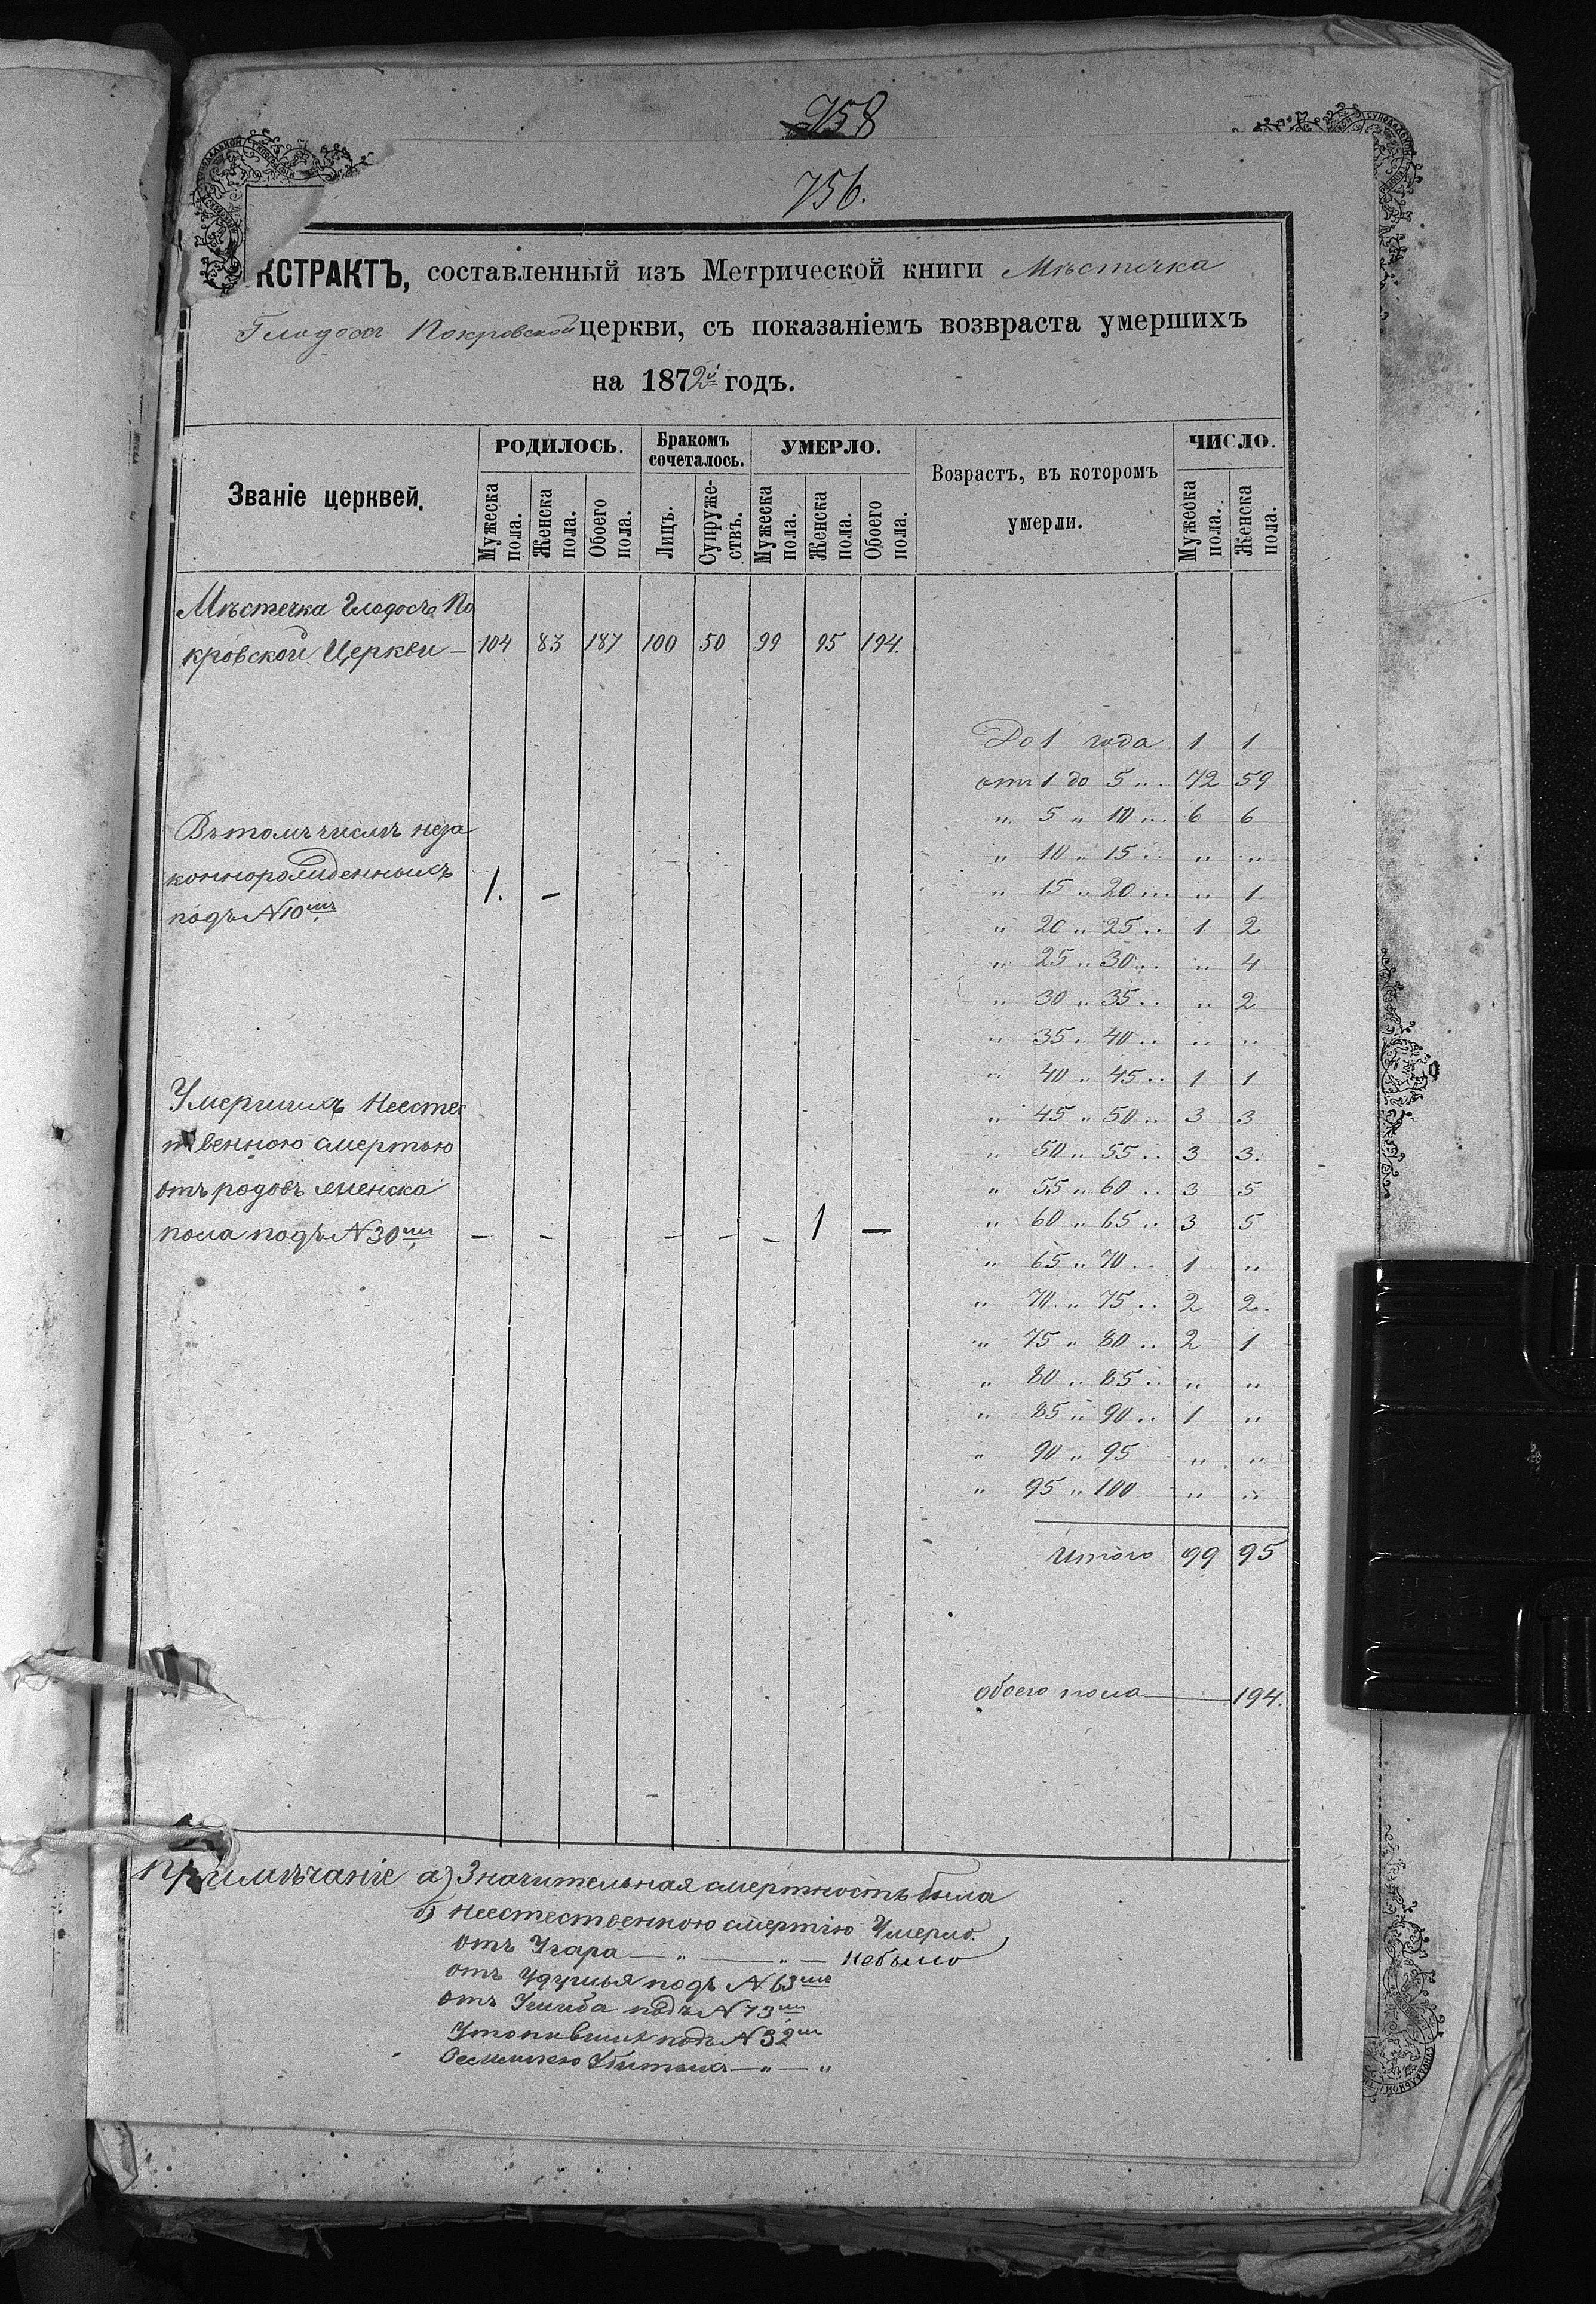 758
756.
КСТРАКТЪ, составленный изъ Метрической книги Мѣстечка
Глодосъ Покровской церкви, съ показаніемъ возвраста умершихъ
на 1872й годъ.
Званіе церквей. РОДИЛОСЬ. Бракомъ сочеталось. УМЕРЛО. Возрастъ, въ котором умерли. ЧИСЛО.
Мужеска пола. Женска пола. Обоего пола. Лицъ. Супруже-ствъ. Мужеска пола. Женска пола. Обоего пола. Мужеска пола. Женска пола.
Мѣстечка Глодосъ По
кровской Церкви — 104 83 187 100 50 99 95 194.
До 1 года 1 1
отъ 1 до 5 ... 72 59
„ 5 „ 10 ... 6 6
Въ томъ числѣ неза
„ 10 „ 15 .. „ „
коннорожденныхъ
„ 15 „ 20 ... „ 1
подъ N10мъ 1. –
„ 20 „ 25 .. 1 2
„ 25 „ 30 .. „ 4
„ 30 „ 35 .. „ 2
„ 35 „ 40 .. „ „
„ 40 „ 45 .. 1 1
Умершихъ Неестес
„ 45 „ 50 .. 3 3
твенною смертью
„ 50 „ 55 .. 3 3.
отъ родовъ женска
„ 55 „ 60 .. 3 5
пола подъ N30мъ – – – – – – 1 –
„ 60 „ 65 .. 3 5
„ 65 „ 70 .. 1 „
„ 70 „ 75 .. 2 2.
„ 75 „ 80 .. 2 1
„ 80 „ 85 .. „ „
„ 85 „ 90 .. 1 „
„ 90 „ 95 „ „
„ 95 „ 100 „ „
Итого 99 95
обоего пола — 194.
Примѣчаніе а) Значительная смертность была
б) Неестественною смертію Умерло.
отъ Угара — „ — „ — Небыло
отъ Удушья подъ N63мъ
отъ Ушиба подъ N73мъ
подъ N32мъ
Убитыхъ — „ — „